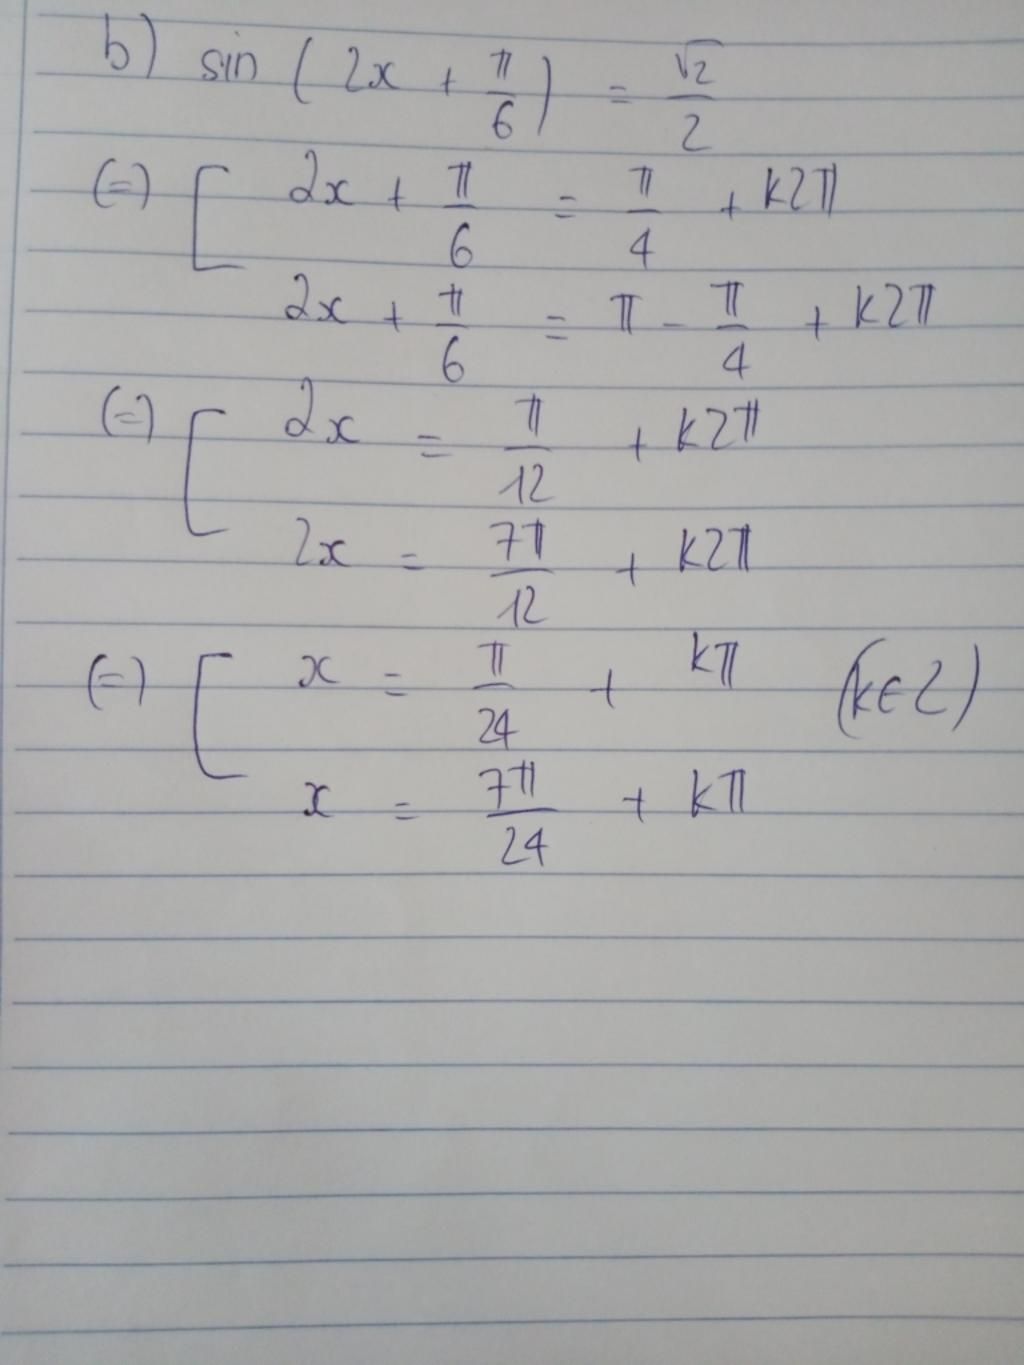 b) sin (2x + π/6) = √2/2
(=) [ 2x + π/6 = π/4 + k2π
2x + π/6 = π - π/4 + k2π
(=) [ 2x = π/12 + k2π
2x = 7π/12 + k2π
(=) [ x = π/24 + kπ (k∈Z)
x = 7π/24 + kπ